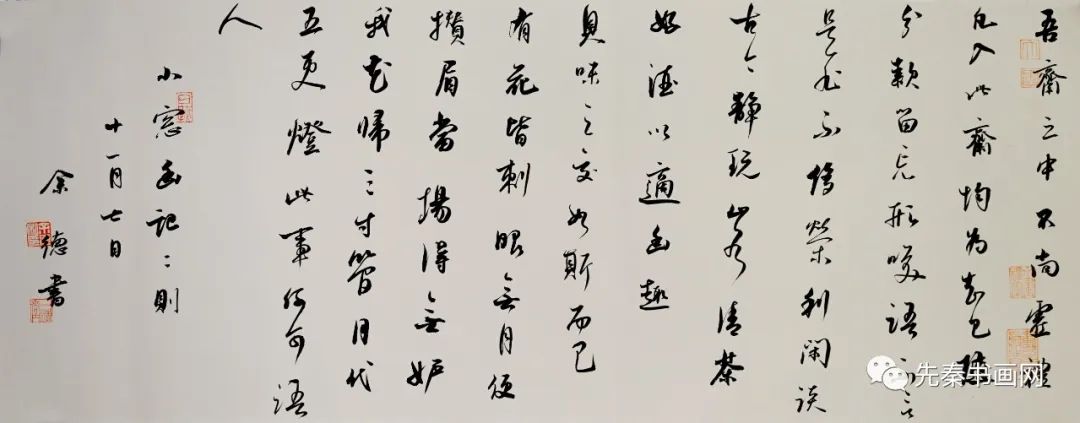 吾齋之中不尚虛禮
凡入此齋均為知己隨
分款留忘形笑語不言
是非不侈榮利閑談
古今靜玩山水清茶
好酒以適幽趣
臭味之交如斯而已
有花皆刺眼無月便
攢眉當場得無妒
我花歸三寸管月代
五更燈此事何可語
人
小窓幽記二則
十一月七日
余德書
先秦书画网